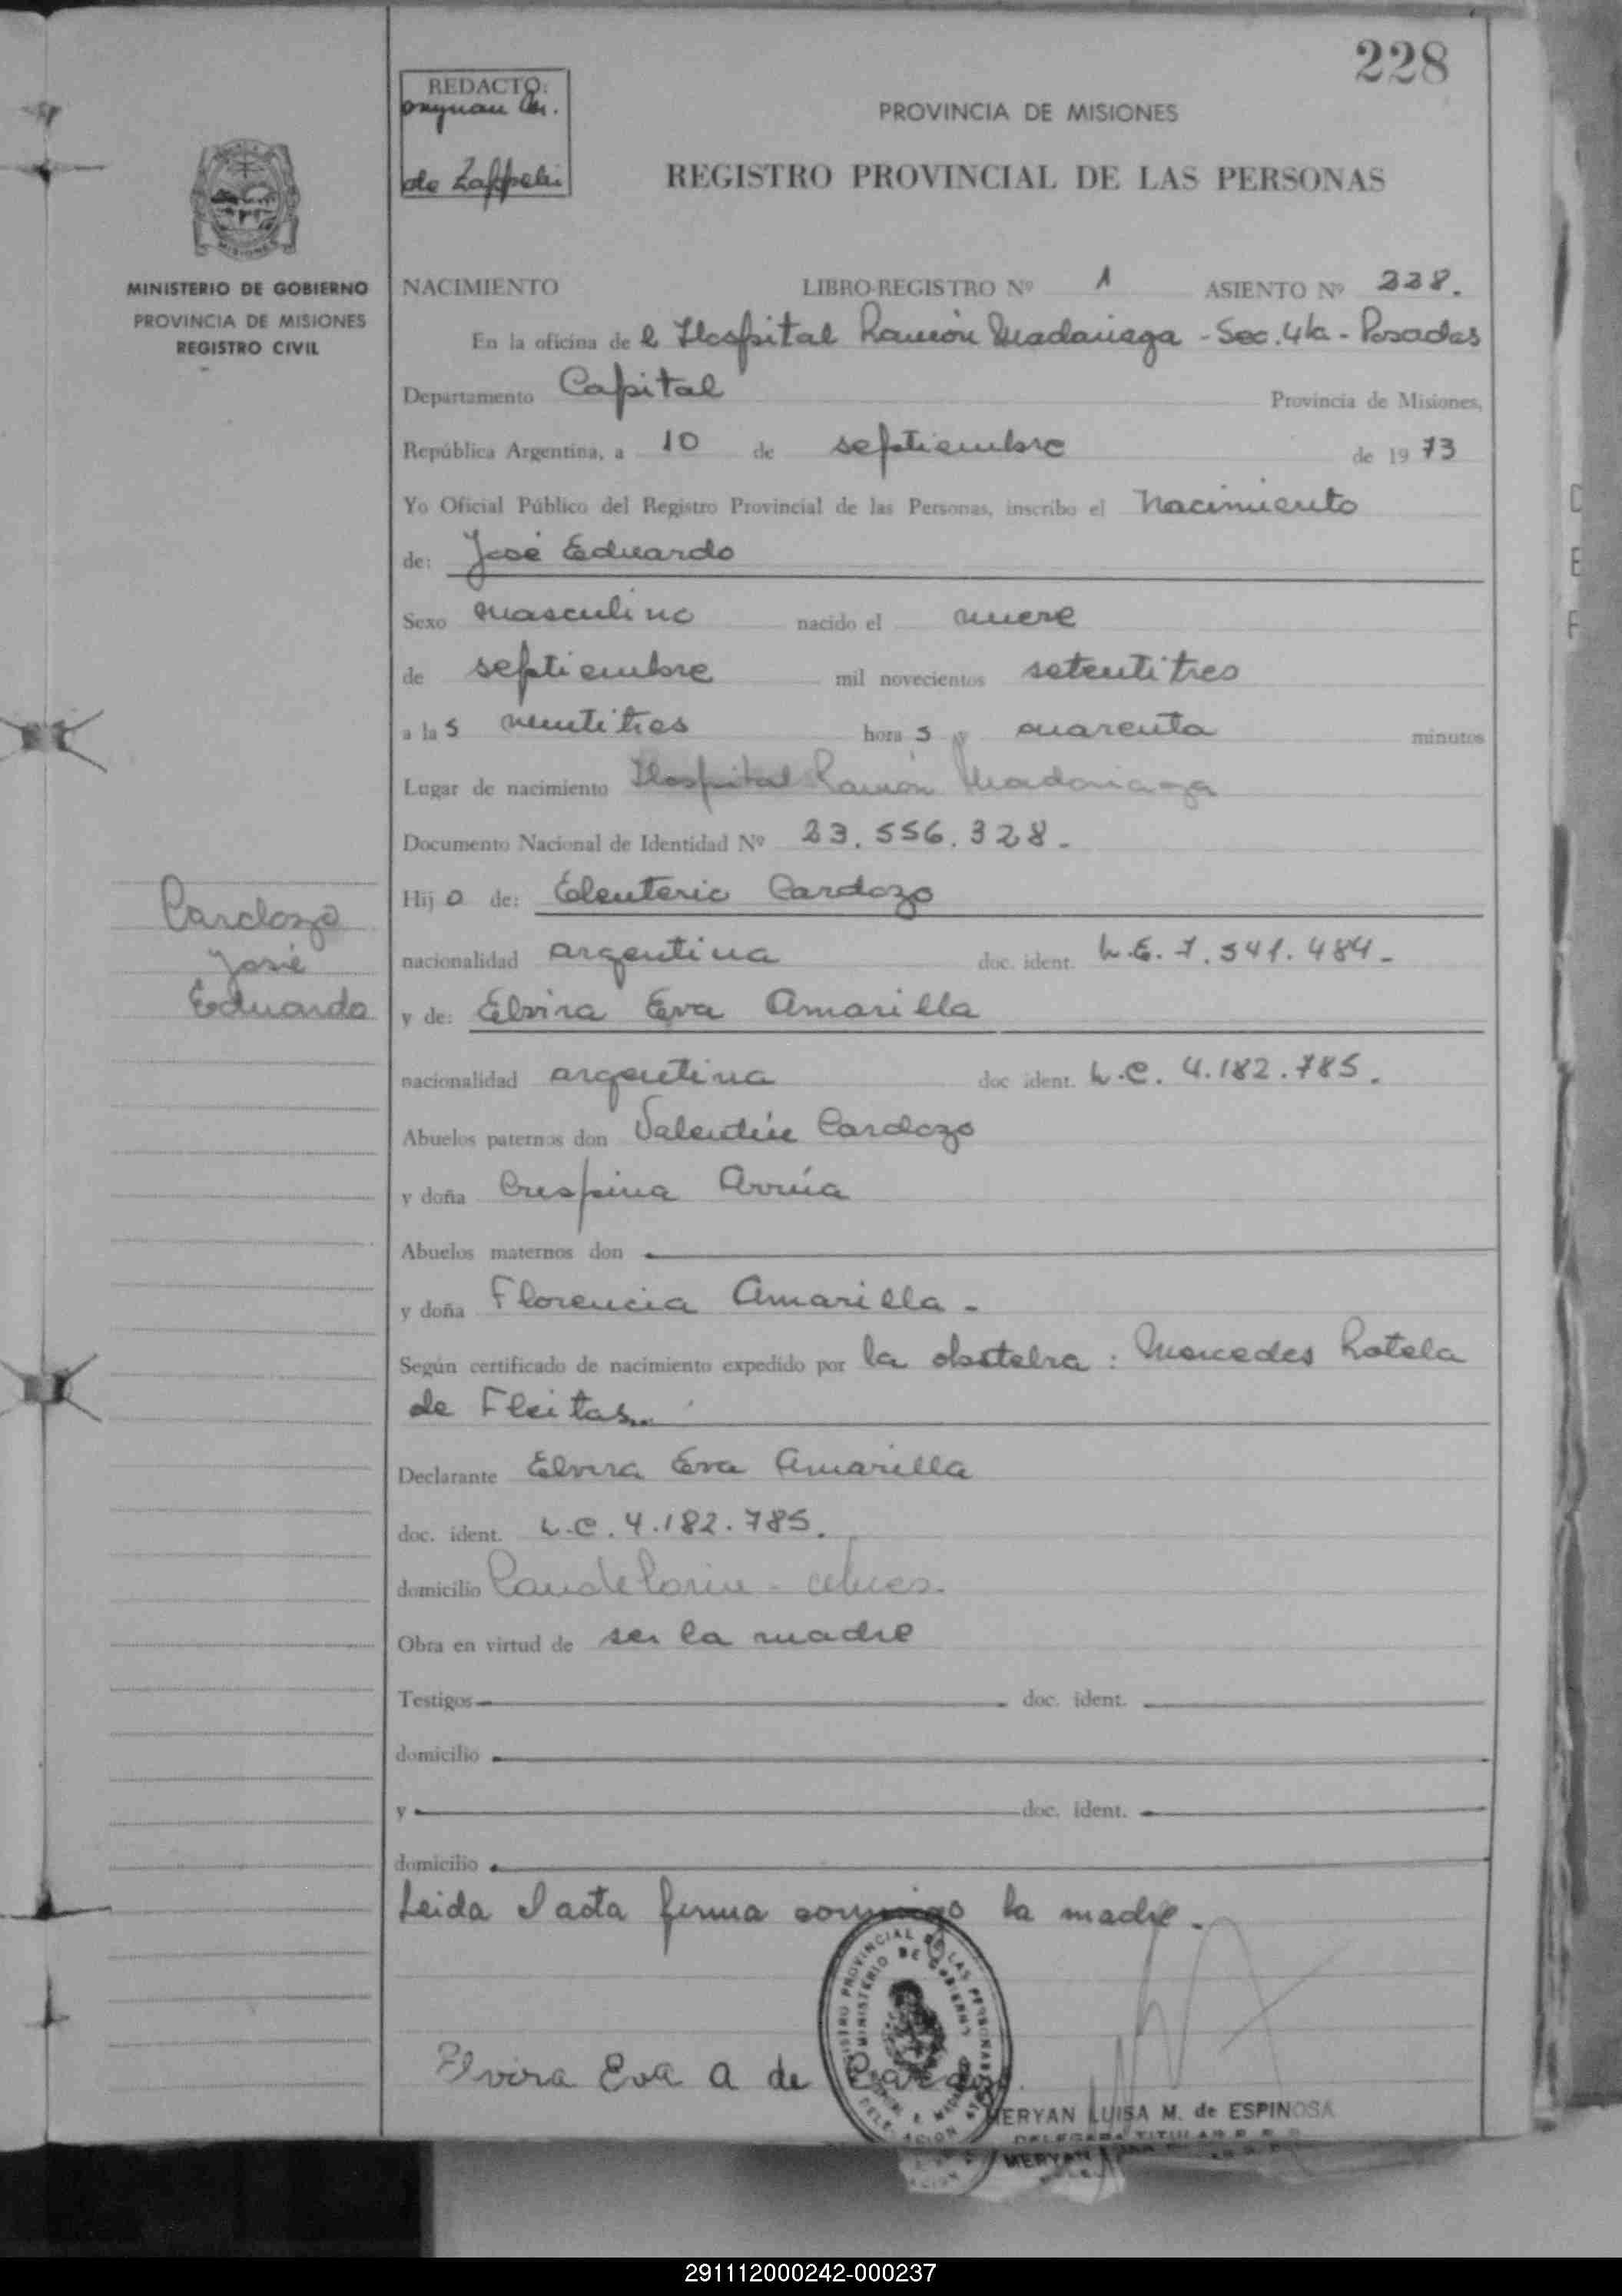 228
REDACTO:
de Zappelli
PROVINCIA DE MISIONES
REGISTRO PROVINCIAL DE LAS PERSONAS
MISIONES
MINISTERIO DE GOBIERNO
PROVINCIA DE MISIONES
REGISTRO CIVIL
NACIMIENTO LIBRO-REGISTRO Nº 1 ASIENTO Nº 228.
En la oficina de l Hospital Ramón Madariaga - Sec. 4ta - Posadas
Departamento Capital Provincia de Misiones,
República Argentina, a 10 de septiembre de 1973
Yo Oficial Público del Registro Provincial de las Personas, inscribo el Nacimiento
de: José Eduardo
Sexo masculino nacido el nueve
de septiembre mil novecientos setentitres
a las veintitres horas y cuarenta minutos
Lugar de nacimiento Hospital Ramón Madariaga
Documento Nacional de Identidad Nº 23.556.328.-
Hijo de: Eleuterio Cardozo
nacionalidad argentina doc. ident. L.E. 7.541.484.-
y de: Elvira Eva Amarilla
nacionalidad argentina doc. ident. L.C. 4.182.785.
Abuelos paternos don Valentín Cardozo
y doña Crespina Arrúa
Abuelos maternos don
y doña Florencia Amarilla.-
Según certificado de nacimiento expedido por la obstetra: Mercedes Rotela
de Fleitas..
Declarante Elvira Eva Amarilla
doc. ident. L.C. 4.182.785.
domicilio Candelaria -
Obra en virtud de ser la madre
Testigos doc. ident.
domicilio
y doc. ident.
domicilio
Leida el acta firma conmigo la madre.
Elvira Eva A de Cardozo.
REGISTRO PROVINCIAL DE LAS PERSONAS
MINISTERIO DE GOBIERNO
DELEGACION
MERYAN LUISA M. de ESPINOSA
DELEGADA TITULAR
MERYAN
Cardozo
José
Eduardo
291112000242-000237